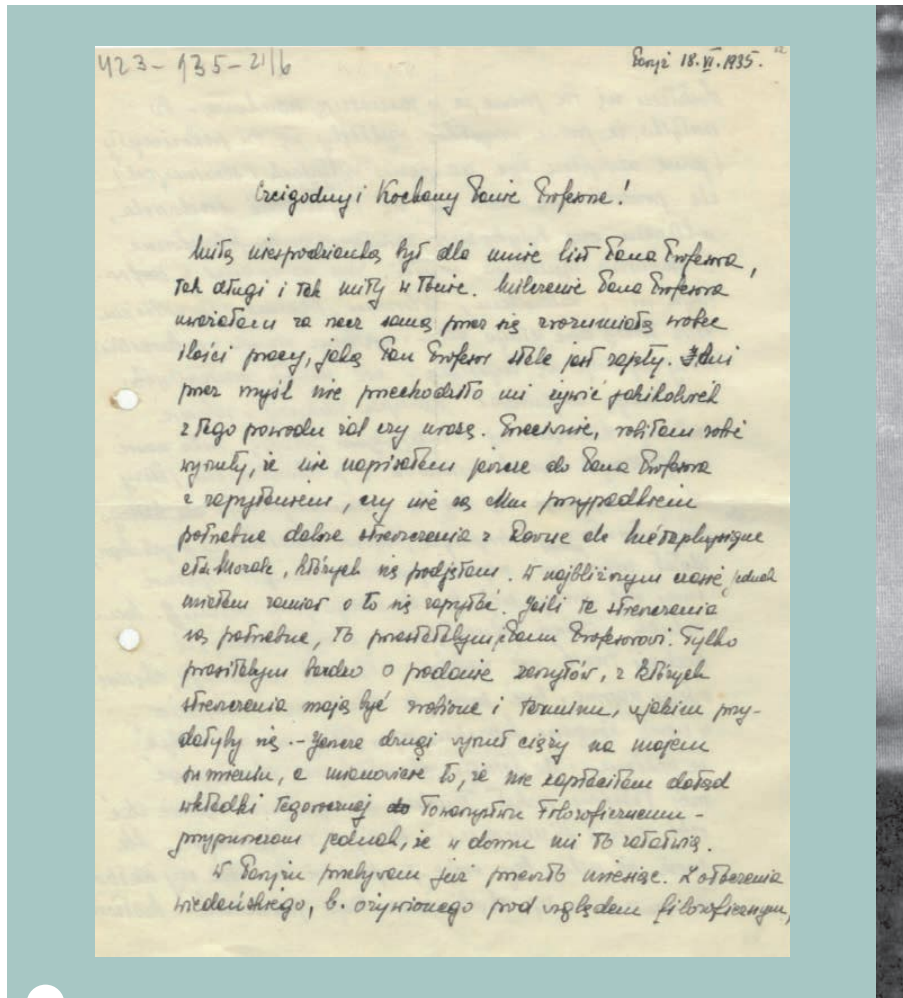 423-135-21/6
Paryż 18.VI.1935.
Czcigodny i Kochany Panie Profesorze!
Miłą niespodzianką był dla mnie list Pana Profesora,
tak długi i tak miły w tonie. Milczenie Pana Profesora
uważałam za rzecz samą przez się zrozumiałą wobec
ilości pracy, jaką Pan Profesor stale jest zajęty. Ani
przez myśl nie przechodziło mi żywić jakikolwiek
z tego powodu żal czy urazę. Przeciwnie, robiłam sobie
wyrzuty, że nie napisałam jeszcze do Pana Profesora
z zapytaniem, czy nie są Mu przypadkiem
potrzebne dalsze streszczenia z Revue de Métaphysique
et de Morale, których się podjęłam. W najbliższym czasie jednak
miałam zamiar o to się zapytać. Jeśli te streszczenia
są potrzebne, to przesłałabym Panu Profesorowi. Tylko
prosiłabym bardzo o podanie zeszytów, z których
streszczenia mają być zrobione i terminu, w jakim przy-
dałyby się. - Jeszcze drugi wyrzut ciąży na mojem
sumieniu, a mianowicie to, że nie zapłaciłam dotąd
wkładki tegorocznej Towarzystwu Filozoficznemu -
przypuszczam jednak, że w domu mi to załatwią.
W Paryżu przebywam już przeszło miesiąc. Z otoczenia
wiedeńskiego, b. ożywionego pod względem filozoficznym,